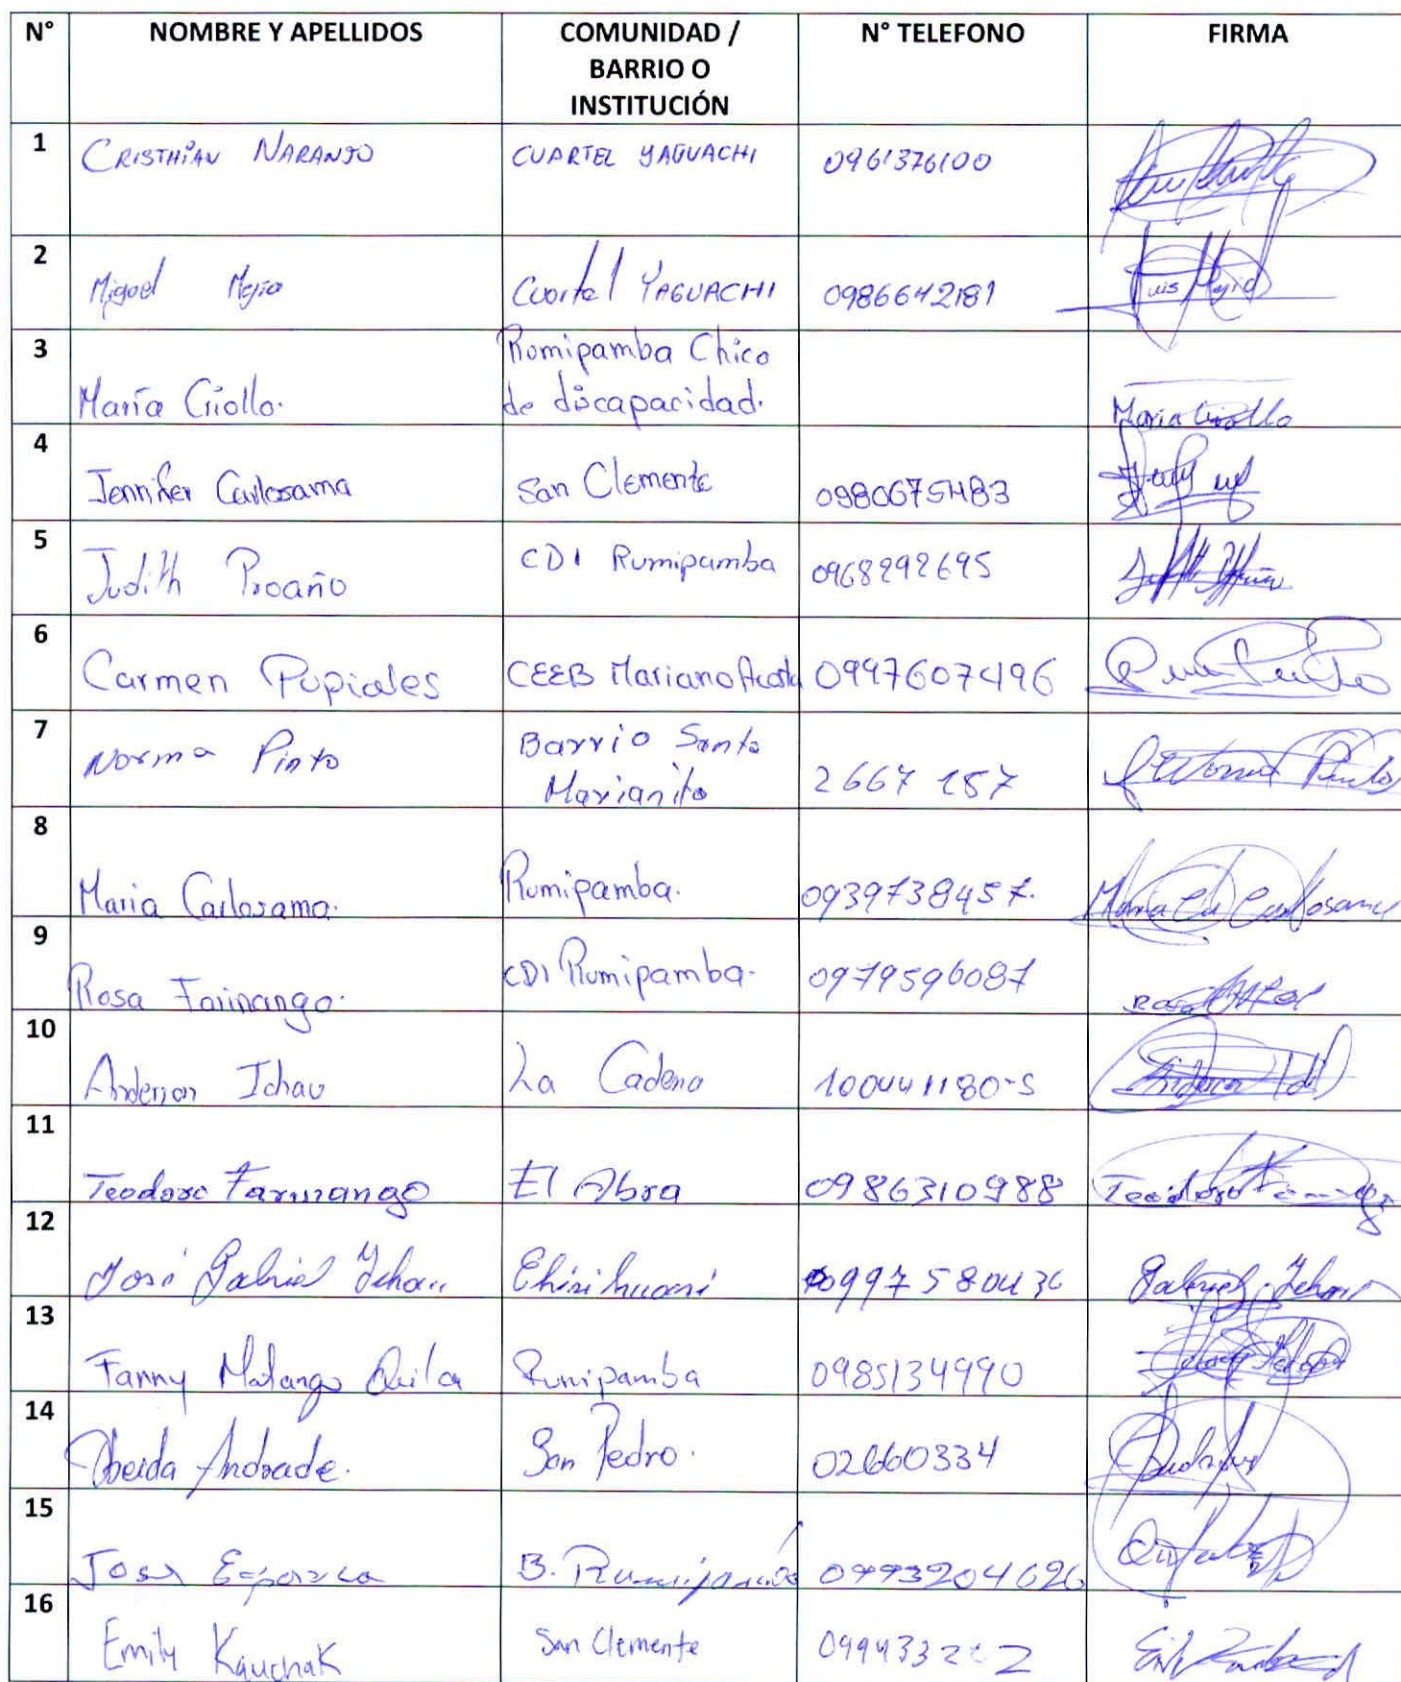 N° NOMBRE Y APELLIDOS COMUNIDAD / BARRIO O INSTITUCIÓN N° TELEFONO FIRMA
1 CRISTHIAN NARANJO CUARTEL YAGUACHI 0961376100
2 Miguel Mejia Cuartel YAGUACHI 0986642181 Luis Mejia
3 María Criollo. Rumipamba Chico
de discapacidad. Maria Criollo
4 Jennifer Carlosama San Clemente 0980675483
5 Judith Proaño CDI Rumipamba 0968292695
6 Carmen Pupiales CEEB Mariano Acosta 0997607496
7 Norma Pinto Barrio Santo
Marianito 2667 187 Norma Pinto
8 Maria Carlosama. Rumipamba. 0939738457. Maria Carlosama
9 Rosa Farinango. CDI Rumipamba. 0979596087 Rosa
10 Anderson Ichau La Cadena 100441180-5
11 Teodoro Farinango El Abra 0986310988 Teodoro
12 José Gabriel Ichau Chirihuasi 0997580436 Gabriel Ichau
13 Fanny Matango Quilca Rumipamba 0985134990
14 Obeida Andrade. San Pedro. 02660334
15 José Esparza B. Rumipamba 0993204626
16 Emily Kauchak San Clemente